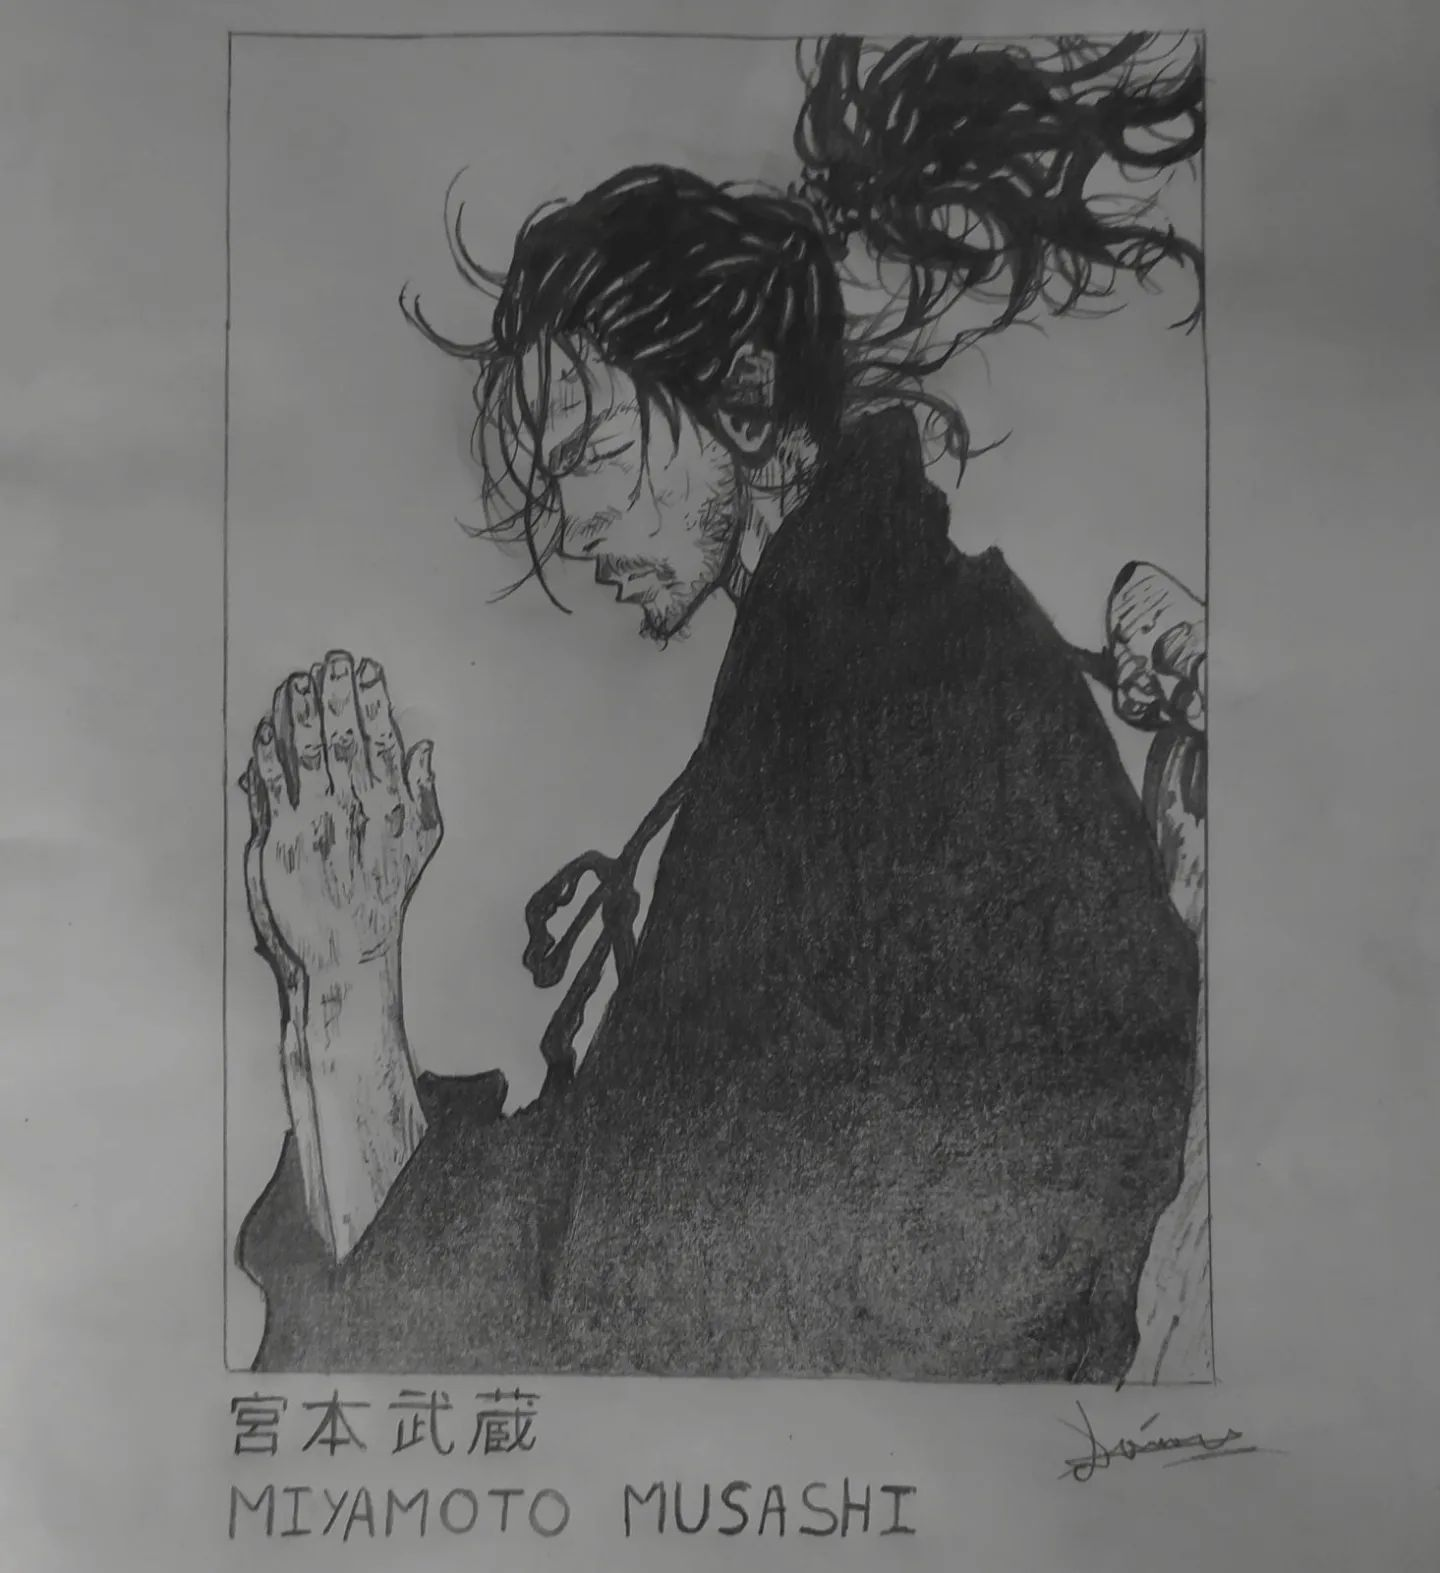 宮本武蔵
MIYAMOTO MUSASHI